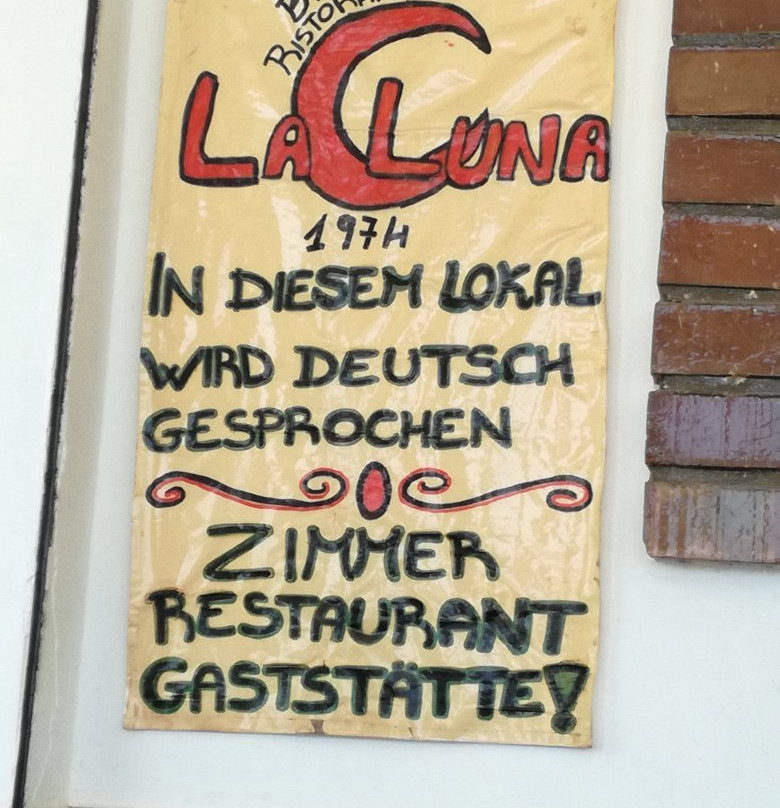 RISTORA
LA LUNA
1974
IN DIESEM LOKAL
WIRD DEUTSCH
GESPROCHEN
ZIMMER
RESTAURANT
GASTSTÄTTE!